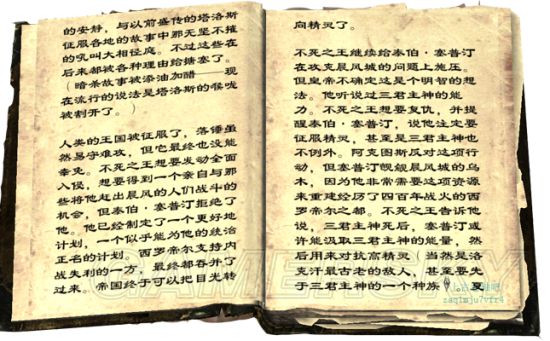 的安静，与以前盛传的塔洛斯
征服各地的故事中那无坚不摧
的吼叫大相径庭。不过这些在
后来都被各种理由给搪塞了。
（暗杀故事被添油加醋——现
在流行的说法是塔洛斯的喉咙
被割开了。）
人类的王国被征服了，落锤虽
然易守难攻，但它最终也没能
幸免。不死之王想要发动全面
入侵，想要得到一个亲自与那
些将他赶出晨风的人们战斗的
机会，但泰伯·塞普汀拒绝了
他。他已经制定了一个更好地
计划，一个似乎能为他的统治
正名的计划。西罗帝尔支持内
战失利的一方，最终都吞并了
过来。帝国终于可以把目光转
向精灵了。
不死之王继续给泰伯·塞普汀
在攻克晨风城的问题上施压。
但皇帝不确定这是个明智的想
法。他听说过三君主神的能
力。不死之王想要复仇，并提
醒泰伯·塞普汀，说他注定要
征服精灵，甚至是三君主神也
不例外。阿克图斯反对这项行
动，但塞普汀觊觎晨风城的乌
木，因为他非常需要这项资源
来重建经历了四百年战火的西
罗帝尔之都。不死之王告诉他
说，三君主神死后，塞普汀或
许能汲取三君主神的能量，然
后用来对抗高精灵，当然是洛
克汗最古老的敌人，甚至要先
于三君主神的一个种族
zaqtmju7vfr4
GAMERSKY